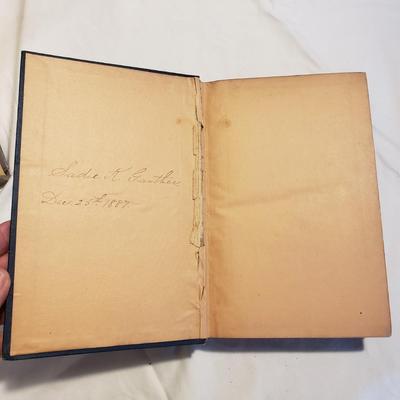 Sadie K Ganther
Dec. 25th 1887.